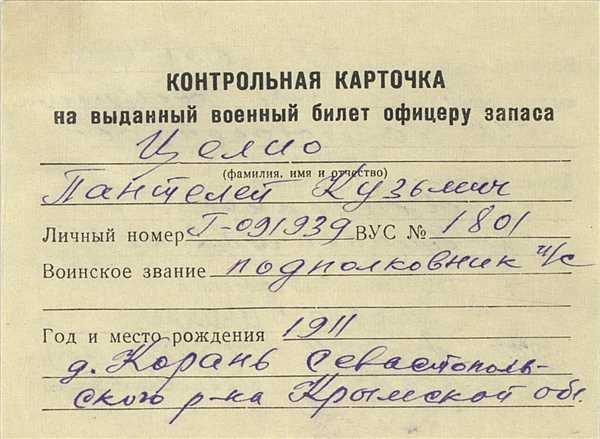 КОНТРОЛЬНАЯ КАРТОЧКА
на выданный военный билет офицеру запаса
Целио
(фамилия, имя и отчество)
Пантелей Кузьмич
Личный номер Г-091939 ВУС № 1801
Воинское звание подполковник и/с
Год и место рождения 1911
д. Корань Севастополь-
ского р-на Крымской обл.